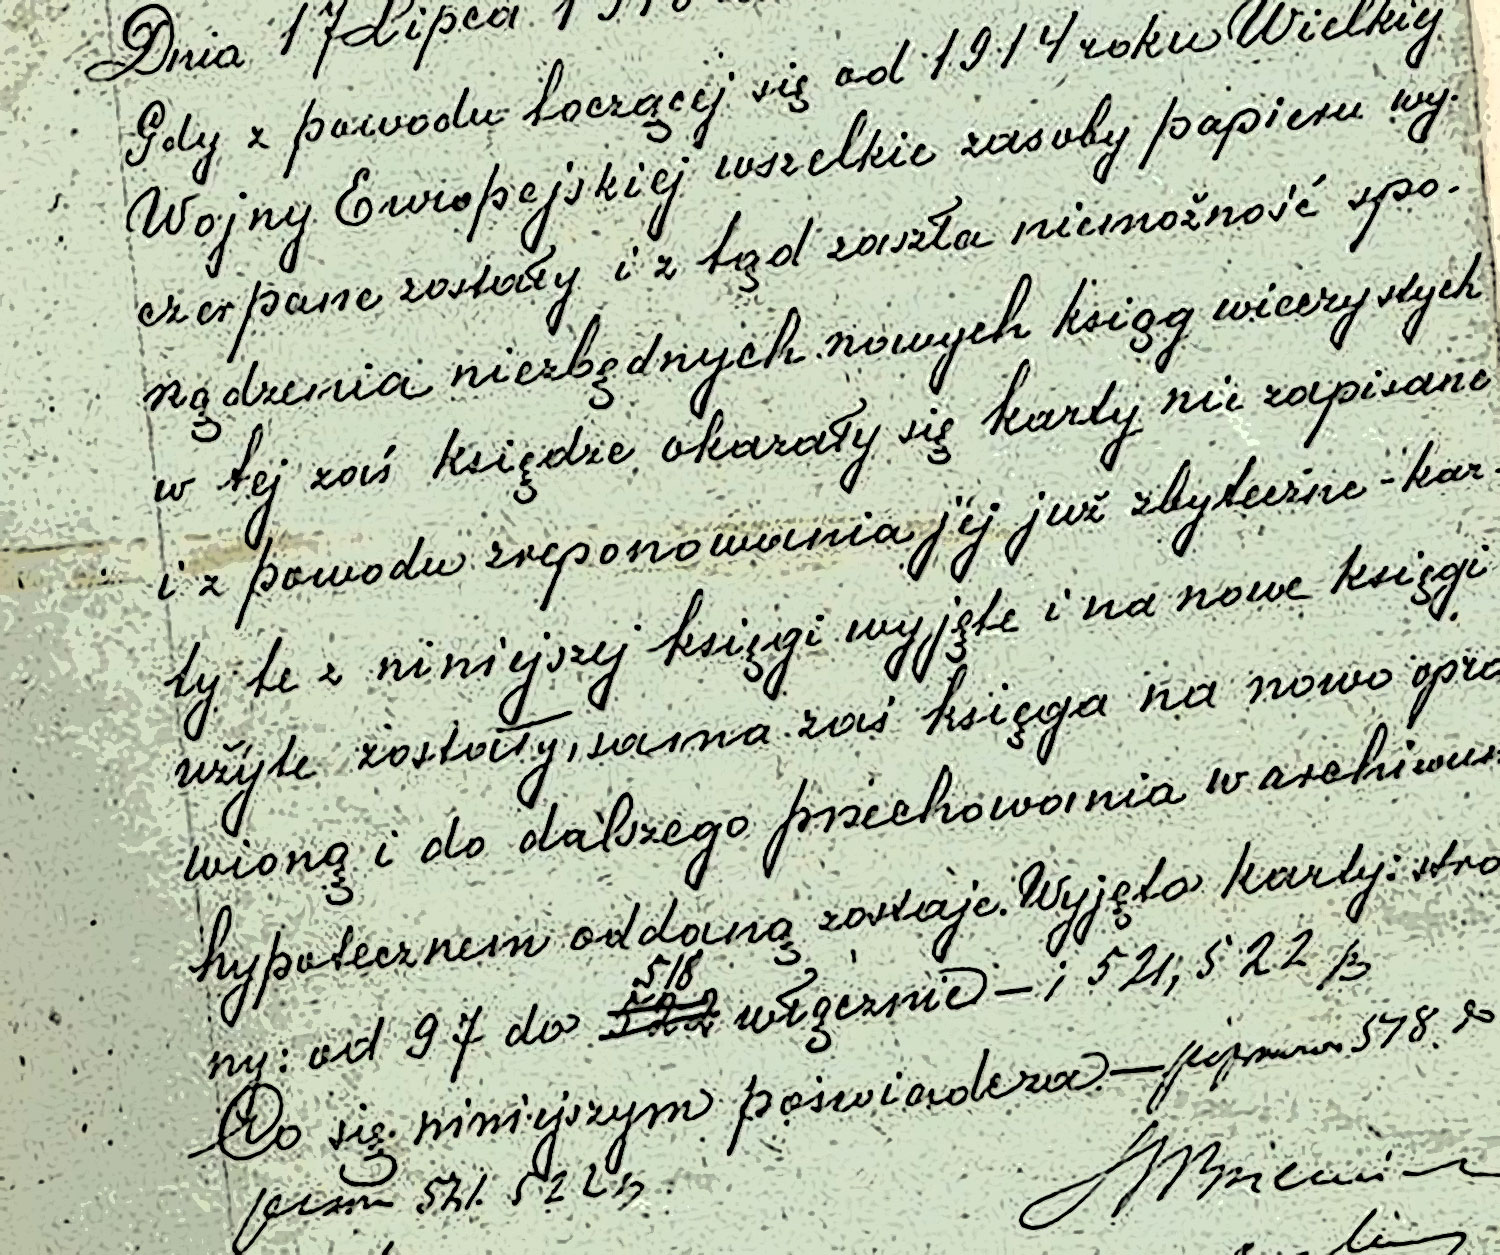 Dnia 17 Lipca
Gdy z powodu toczącej się od 1914 roku Wielkiej
Wojny Europejskiej wszelkie zasoby papieru wy-
czerpane zostały i z tąd zaszła niemożność spo-
rządzenia niezbędnych nowych ksiąg wieczystych
w tej zaś księdze okazały się karty nie zapisane
i z powodu zreponowania jej już zbyteczne - kar-
ty te z niniejszej księgi wyjęte i na nowe księgi
użyte zostały, sama zaś księga na nowo opra
wioną i do dalszego przechowania w archiwum
hypotecznem oddaną zostaje. Wyjęto karty: stro
518
ny: od 97 do 522 włącznie — i 521, 522
Co się niniejszym poświadcza. — 518.
521. 522